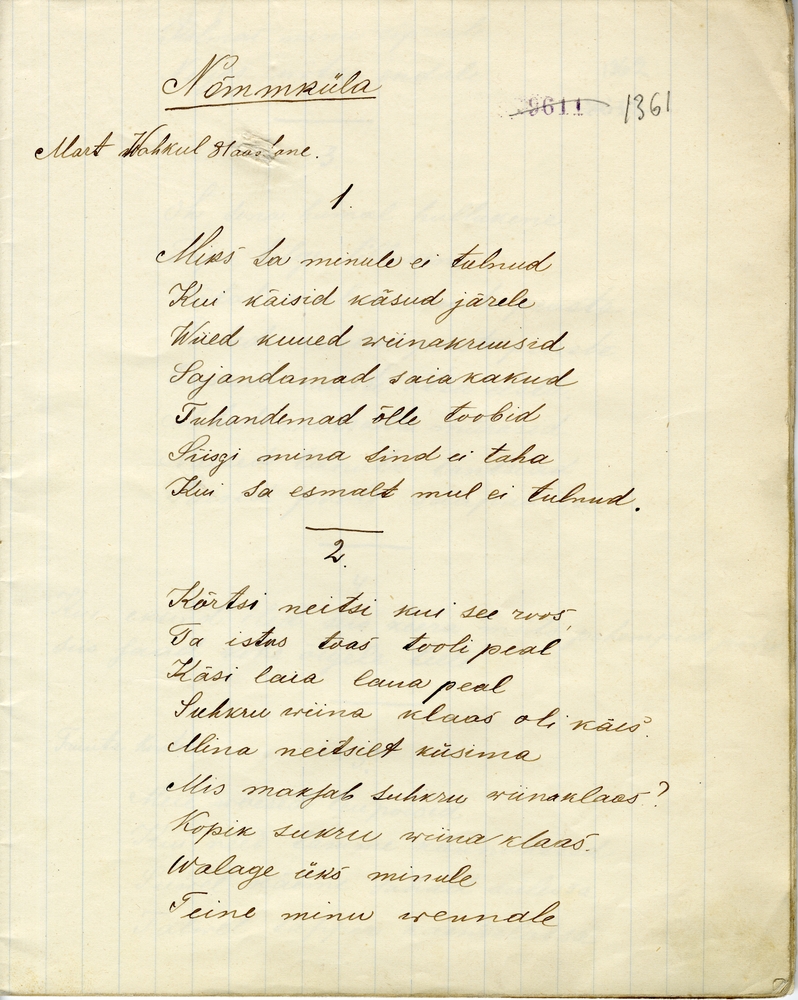 Nõmmküla
9611 1361
Mart Wahkul
1.
Miks sa minule ei tulnud
Kui käisid käsud järele
Wiied kuued wiinakruusid
Sajandamad saiakakud
Tuhandemad õlle toobid
Siisgi mina sind ei taha
Kui sa esmalt mul ei tulnud.
2.
Kõrtsi neitsi kui see roos,
Ta istus toas tooli peal
Käsi laia laua peal
Suhkru wiina klaas oli käes.
Mina neitsilt küsima
Mis maksab suhkru wiinaklaas?
Kopik sukru wiina klaas.
Walage üks minule
Teine minu wennale